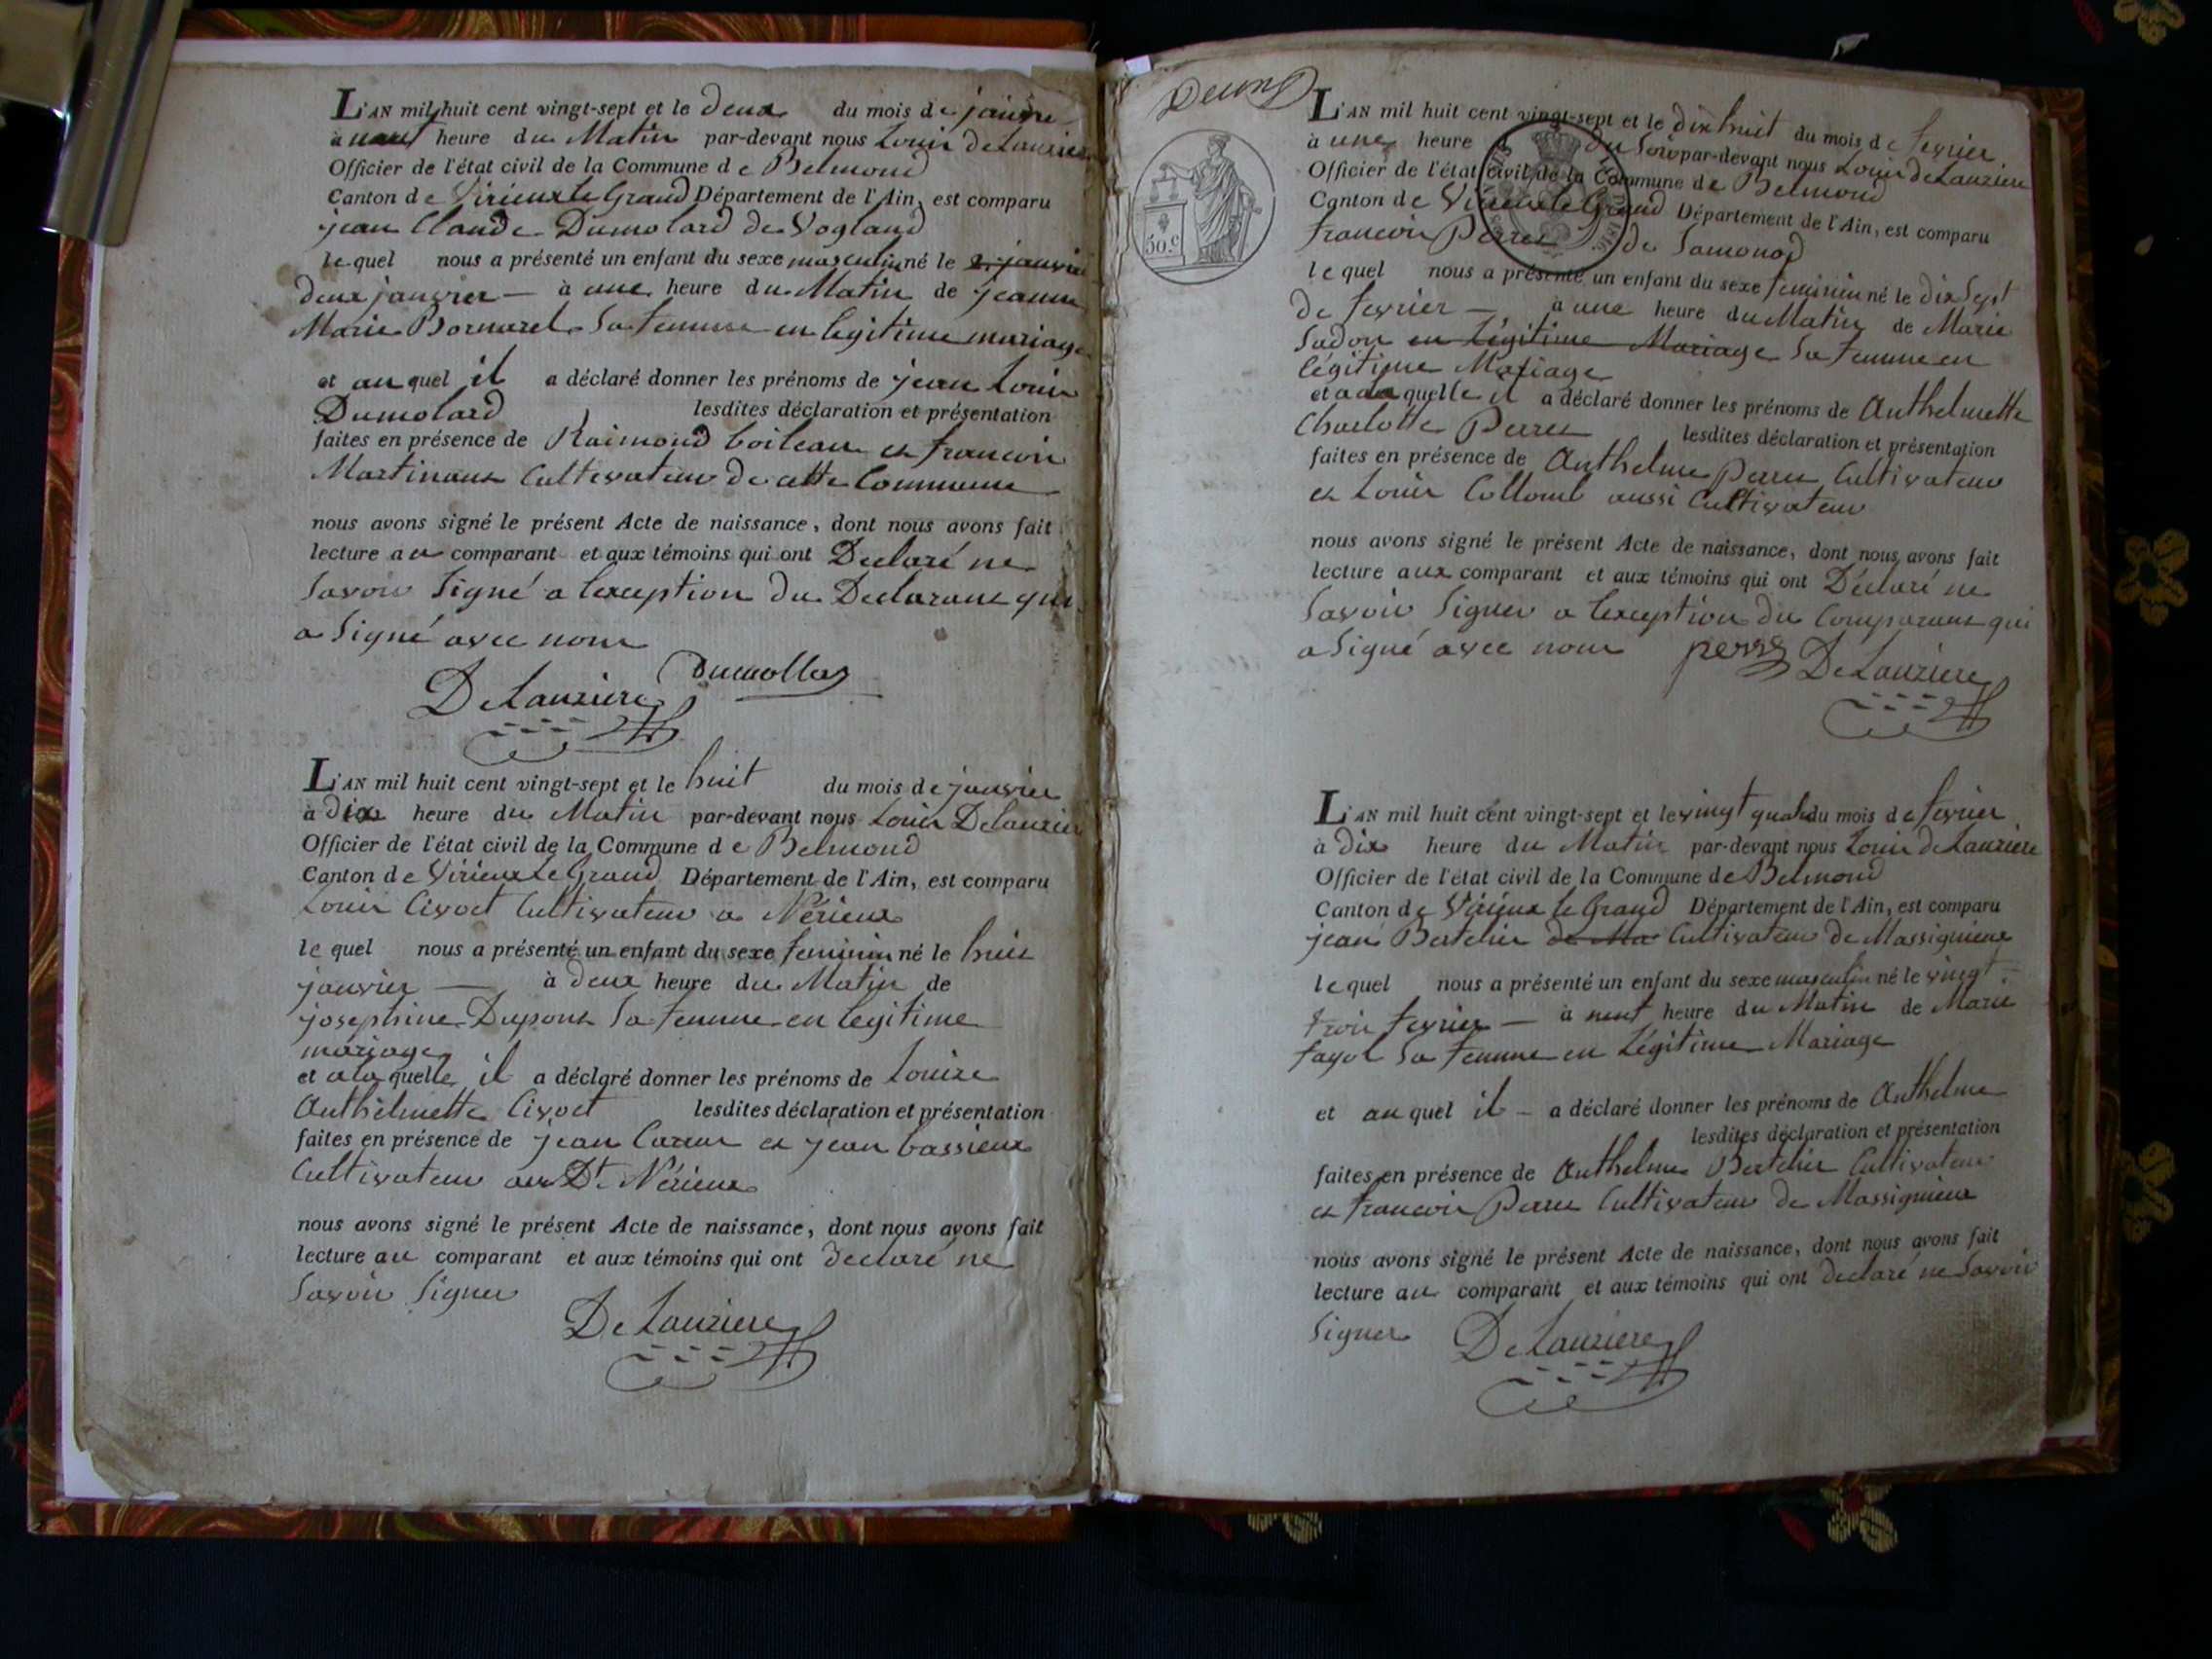 L'AN mil huit cent vingt-sept et le deux du mois de janvie
à neuf heure du Matin par-devant nous Louis deLauzier
Officier de l'état civil de la Commune de Belmond
Canton de Virieux le Grand Département de l'Ain, est comparu
jean Claude Dumolard de Vogland
lequel nous a présenté un enfant du sexe masculin né le 2. janvier
deux janvier — à une heure du Matin de jeanne
Marie Bornarel Sa femme en legitime mariage
et au quel il a déclaré donner les prénoms de jean Louis
Dumolard lesdites déclaration et présentation
faites en présence de Raimond boileau et francois
Martinant Cultivateur de cette Commune
nous avons signé le présent Acte de naissance, dont nous avons fait
lecture au comparant et aux témoins qui ont Declaré ne
Savoir Signé a lexception du Declarant qui
a Signé avec nous
Dumollar
DeLauziere
L'AN mil huit cent vingt-sept et le huit du mois de janvier
à dix heure du Matin par-devant nous Louis DeLauzier
Officier de l'état civil de la Commune de Belmond
Canton de Virieux Le Grand Département de l'Ain, est comparu
Louis Civoct Cultivateur a Nérieux
lequel nous a présenté un enfant du sexe feminin né le huit
janvier — à deux heure du Matin de
josephine Dupont Sa femme en legitime
mariage
et a la quelle il a déclaré donner les prénoms de Louise
Anthelmette Civoct lesdites déclaration et présentation
faites en présence de jean Carrur et jean bassieux
Cultivateur au Dt Nérieux
nous avons signé le présent Acte de naissance, dont nous avons fait
lecture au comparant et aux témoins qui ont declaré ne
Savoir Signer
DeLauziere
50.c
L'AN mil huit cent vingt-sept et le dix huit du mois de fevrier
à une heure du Soir par-devant nous Louis deLauziere
Officier de l'état civil de la Commune de Belmond
Canton de Virieux le Grand Département de l'Ain, est comparu
francois Perret de Samonod
lequel nous a présenté un enfant du sexe feminin né le dix Sept
de fevrier — à une heure du Matin de Marie
Sadon en Légitime Mariage Sa femme en
légitime Mariage
et a la quelle il a déclaré donner les prénoms de Anthelmette
Charlotte Perret lesdites déclaration et présentation
faites en présence de Anthelme Perret Cultivateur
et Louis Collomb aussi Cultivateur
nous avons signé le présent Acte de naissance, dont nous avons fait
lecture aux comparant et aux témoins qui ont Déclaré ne
Savoir Signer a lexception du Comparant qui
a Signé avec nous
DeLauziere
L'AN mil huit cent vingt-sept et le vingt quatre du mois de fevrier
à dix heure du Matin par-devant nous Louis deLauziere
Officier de l'état civil de la Commune de Belmond
Canton de Virieux le Grand Département de l'Ain, est comparu
jean Bertelier de Ma Cultivateur de Massignieux
lequel nous a présenté un enfant du sexe masculin né le vingt
trois fevrier — à neuf heure du Matin de Marie
fayol Sa femme en Légitime Mariage
et au quel il — a déclaré donner les prénoms de Anthelme
lesdites déclaration et présentation
faites en présence de Anthelme Bertelier Cultivateur
et francois Perret Cultivateur de Massignieux
nous avons signé le présent Acte de naissance, dont nous avons fait
lecture au comparant et aux témoins qui ont declaré ne Savoir
Signer
DeLauziere